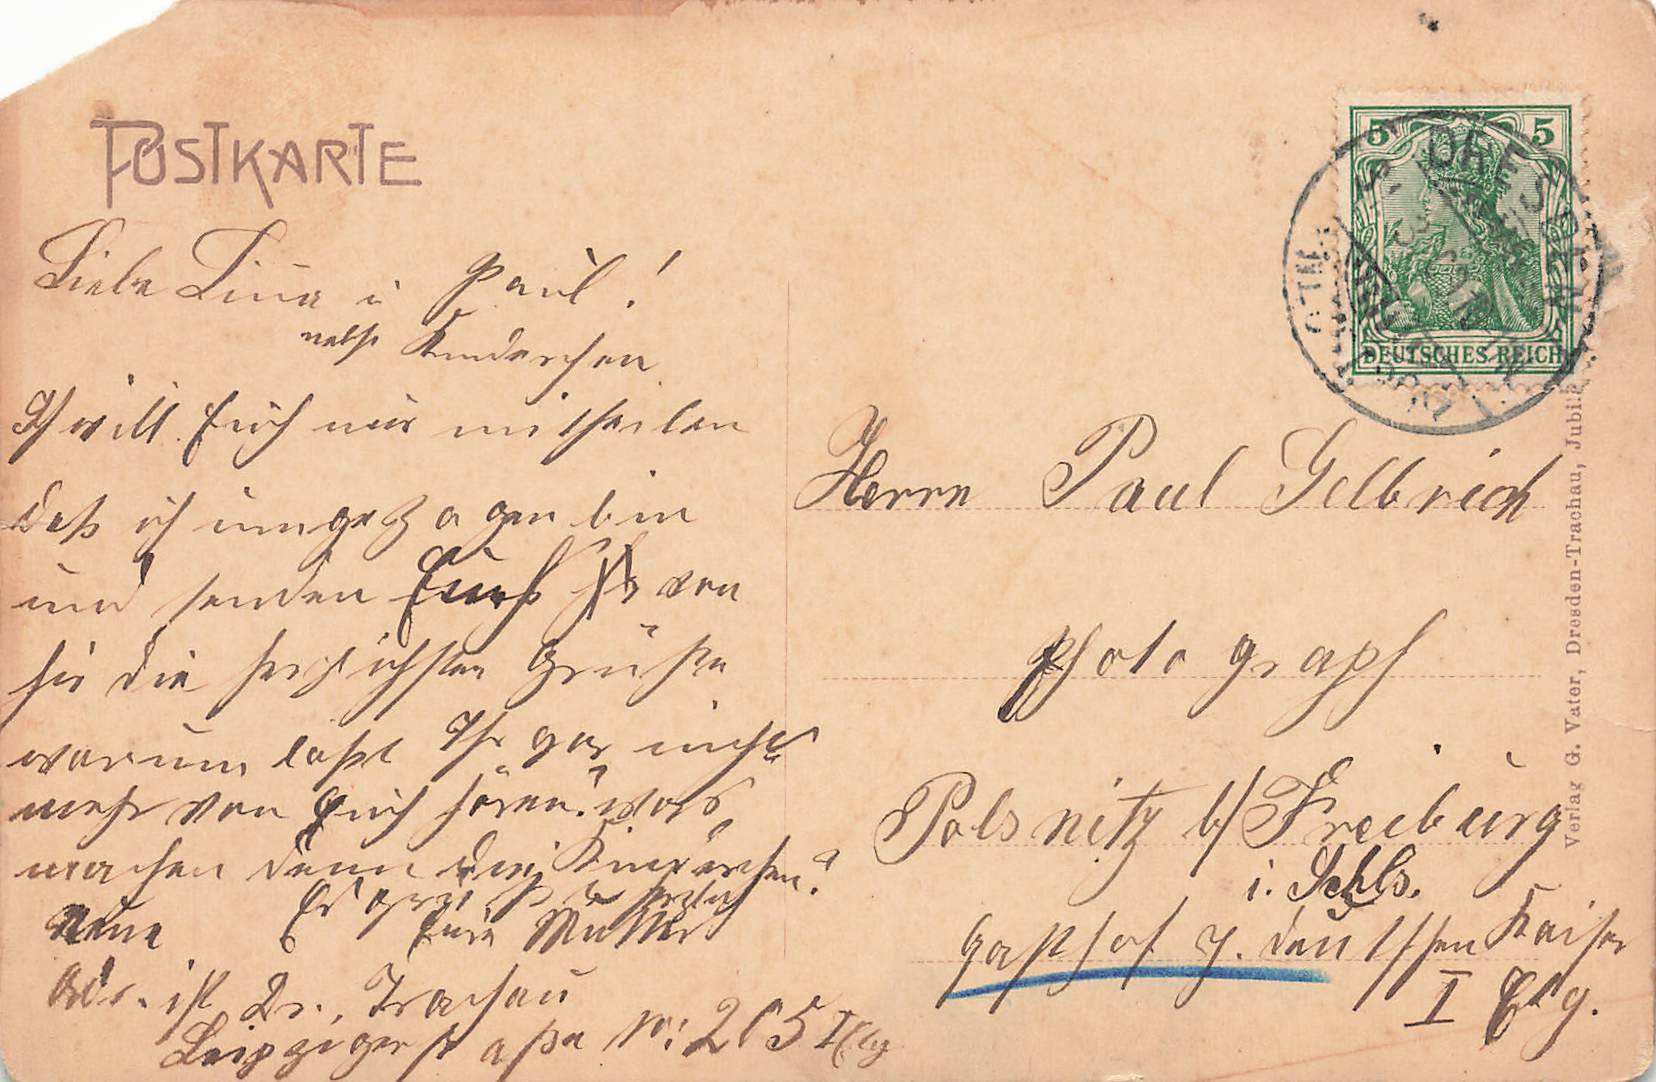 POSTKARTE
Liebe Lina u Paul!
nebst Kinderchen
Ich will Euch nur mitheilen
daß ich umgezogen bin
und senden Euch von
hir die herzlichsten Grüße
warum laßt Ihr gar nichts
mehr von Euch hören? was
machen denn die Kinderchen?
Es grüßt herzlich
Eure Mutter
neue
Adr. ist Dr. Trachau
Leipzigerstraße N: 205 II Etg
5 5
DRESDEN
DEUTSCHES REICH
Herrn Paul Gelbrich
Photograph
Polsnitz b/ Freiburg
i. Schls.
Gasthof z. deutschen Kaiser
I Etg.
Verlag G. Vater, Dresden-Trachau, Jubil